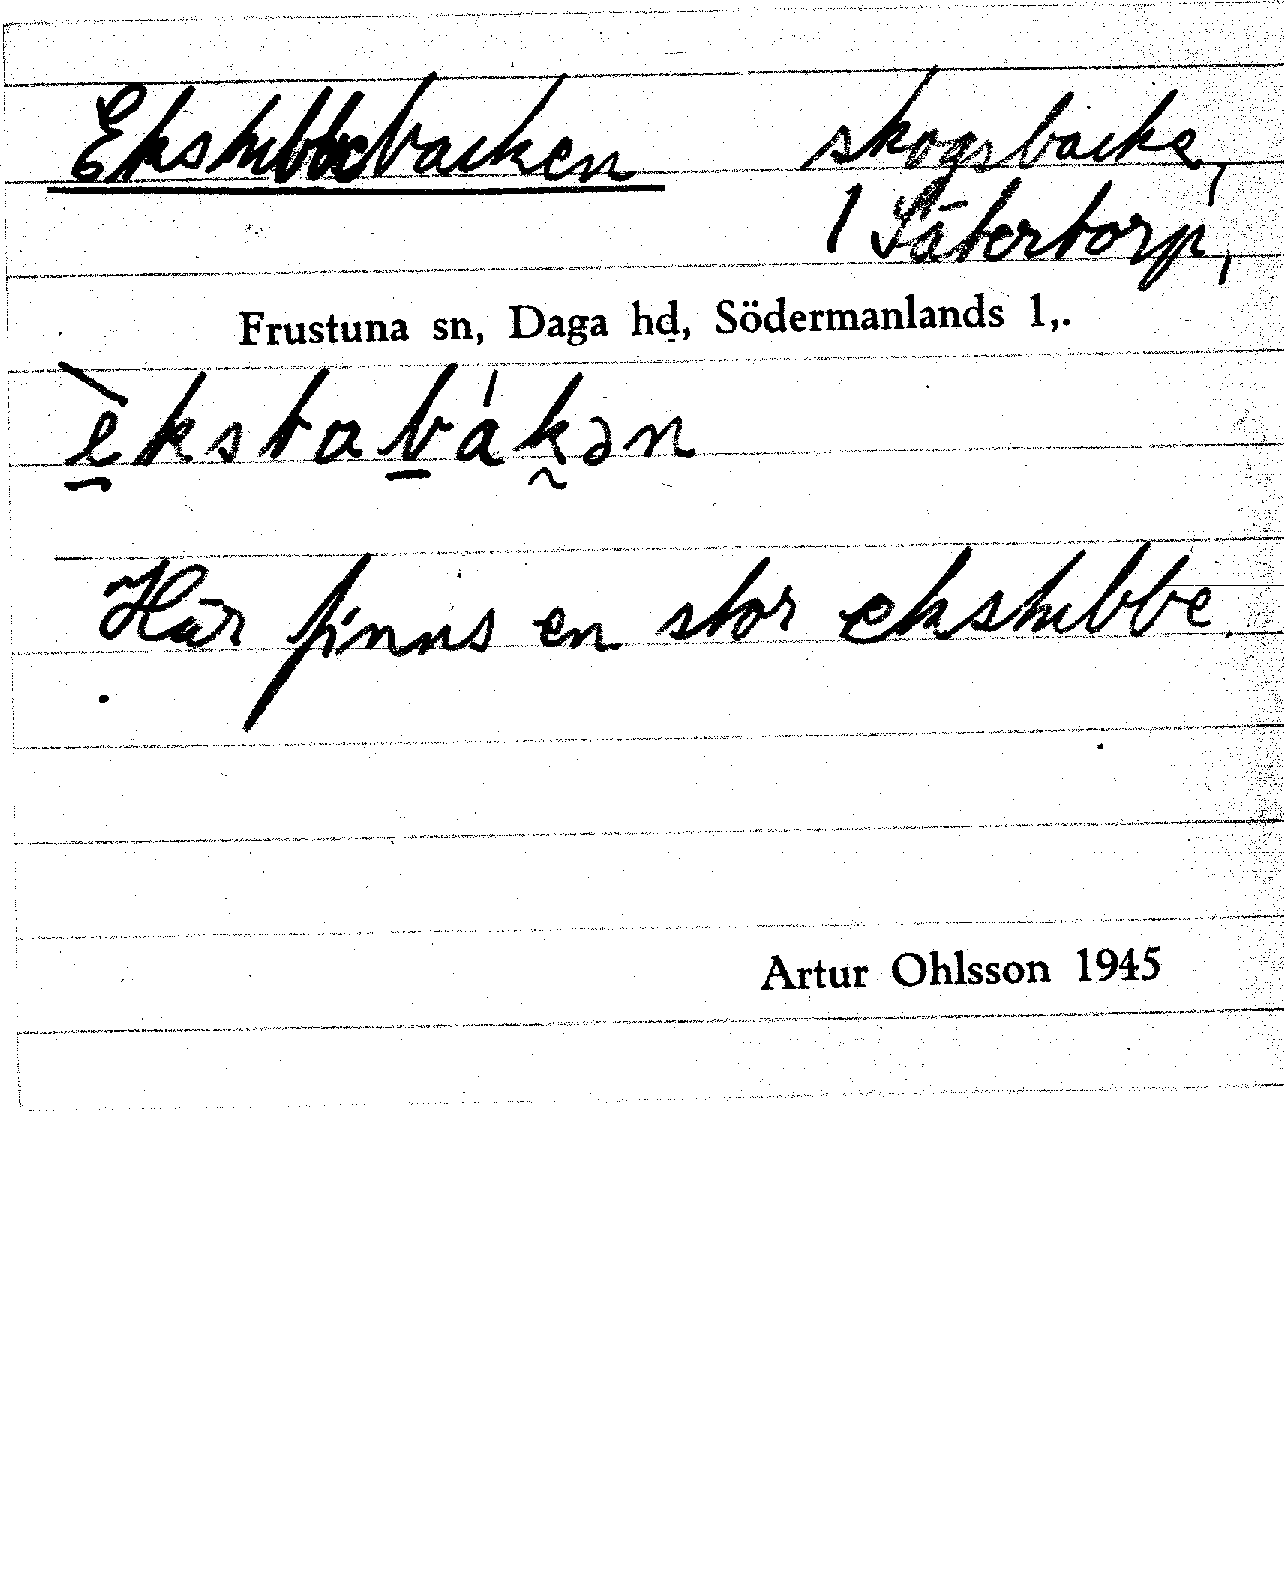 Ekstubbebacken skogsbacke,
1 Sätertorp,
Frustuna sn, Daga hd, Södermanlands l,.
èkstabákən
Här finns en stor ekstubbe.
Artur Ohlsson 1945